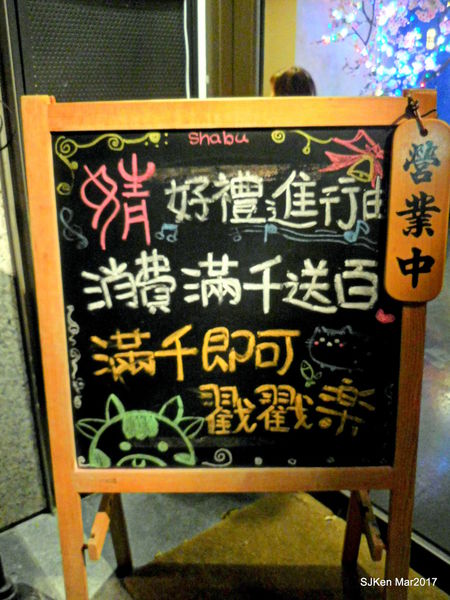 shabu
婧 好禮進行中
消費滿千送百
滿千即可
戳戳樂
營業中
SJKen Mar2017